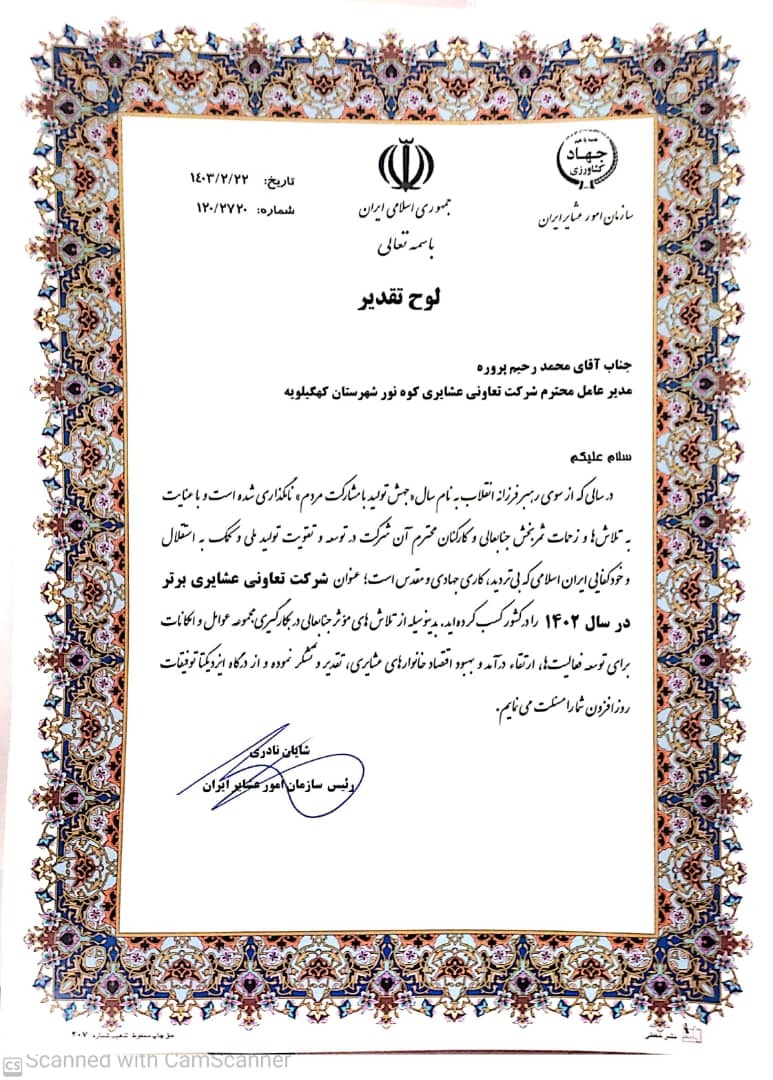 همه با هم
جهاد
کشاورزی
سازمان امور عشایر ایران
جمهوری اسلامی ایران
باسمه تعالی
تاریخ: ۱۴۰۳/۲/۲۲
شماره: ۱۲۰/۲۷۲۰
لوح تقدیر
جناب آقای محمد رحیم پروره
مدیر عامل محترم شرکت تعاونی عشایری کوه نور شهرستان کهگیلویه
سلام علیکم
در سالی که از سوی رهبر فرزانه انقلاب به نام سال «جهش تولید با مشارکت مردم» نامگذاری شده است و با عنایت
به تلاش‌ها و زحمات ثمربخش جنابعالی و کارکنان محترم آن شرکت در توسعه و تقویت تولید ملی و کمک به استقلال
و خودکفایی ایران اسلامی که بی‌تردید، کاری جهادی و مقدس است؛ عنوان شرکت تعاونی عشایری برتر
در سال ۱۴۰۲ را در کشور کسب کرده‌اید. بدینوسیله از تلاش های مؤثر جنابعالی در بکارگیری مجموعه عوامل و امکانات
برای توسعه فعالیت‌ها، ارتقاء درآمد و بهبود اقتصاد خانوارهای عشایری، تقدیر و تشکر نموده و از درگاه ایزد یکتا توفیقات
روز افزون شما را مسئلت می نمایم.
شایان نادری
رئیس سازمان امور عشایر ایران
حق چاپ محفوظ تذهیب شماره ۲۰۷
CS Scanned with CamScanner